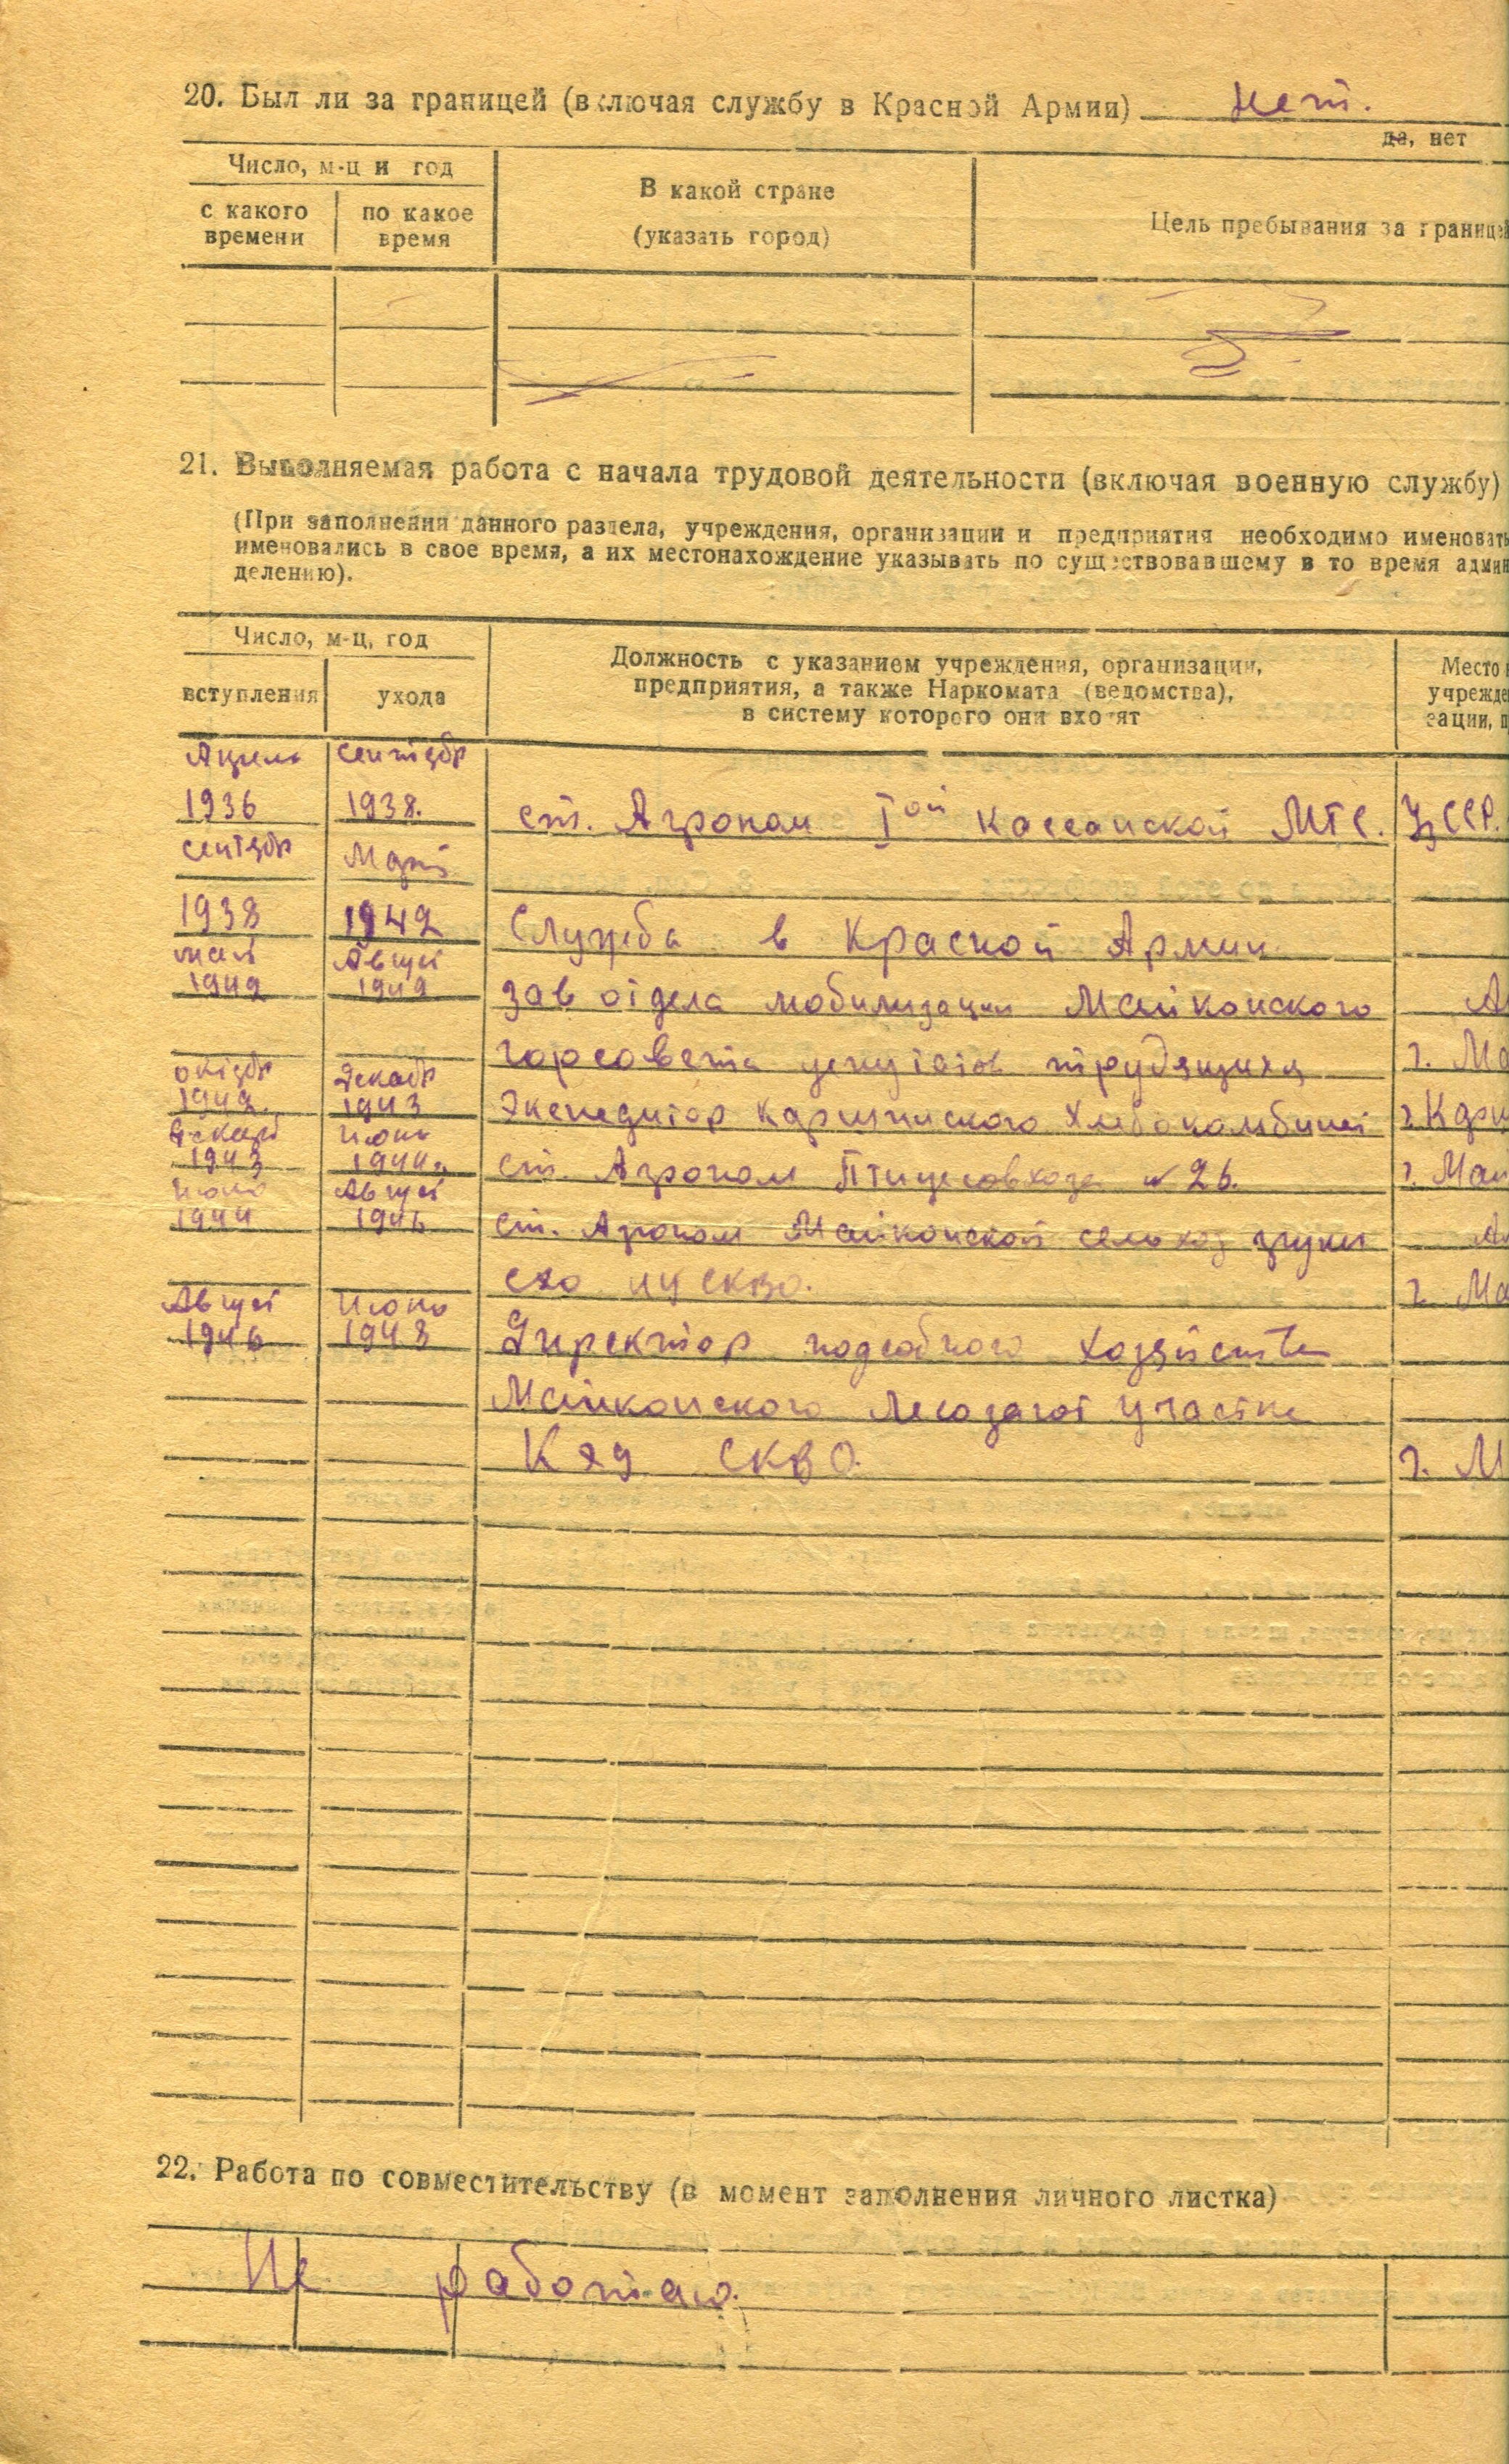 20. Был ли за границей (включая службу в Красной Армии) нет.
да, нет
Число, м-ц и год
с какого времени
по какое время
В какой стране
(указать город)
Цель пребывания за границей
21. Выполняемая работа с начала трудовой деятельности (включая военную службу)
(При заполнении данного раздела, учреждения, организации и предприятия необходимо именовать
именовались в свое время, а их местонахождение указывать по существовавшему в то время админ
делению).
Число, м-ц, год
вступления
ухода
Должность с указанием учреждения, организации,
предприятия, а также Наркомата (ведомства),
в систему которого они входят
Место
учрежде
зации, п
Апрель сентябр
1936 1938. ст. Агроном Iой Кассанской МТС. УзССР.
сентябр Март
1938 1942 Служба в Красной Армии
май Август
1942 1942 зав отдела мобилизации Майкопского А
горсовета депутатов трудящихся г. Ма
октябр Декабр
1942 1943 Экспедитор Каршинского Хлебокомбинат г. Карш
Декабр Июнь
1943 1944г. ст. Агроном Птицесовхоза № 26. г. Май
Июнь Август
1944 1946 ст. Агроном Майкопской сельхоз А
СКВО. г. Ма
Август Июнь
1946 1948 Директор подсобного хозяйства
Майкопского Лесозагот участка
СКВО. г. М
22. Работа по совместительству (в момент заполнения личного листка)
Не работаю.